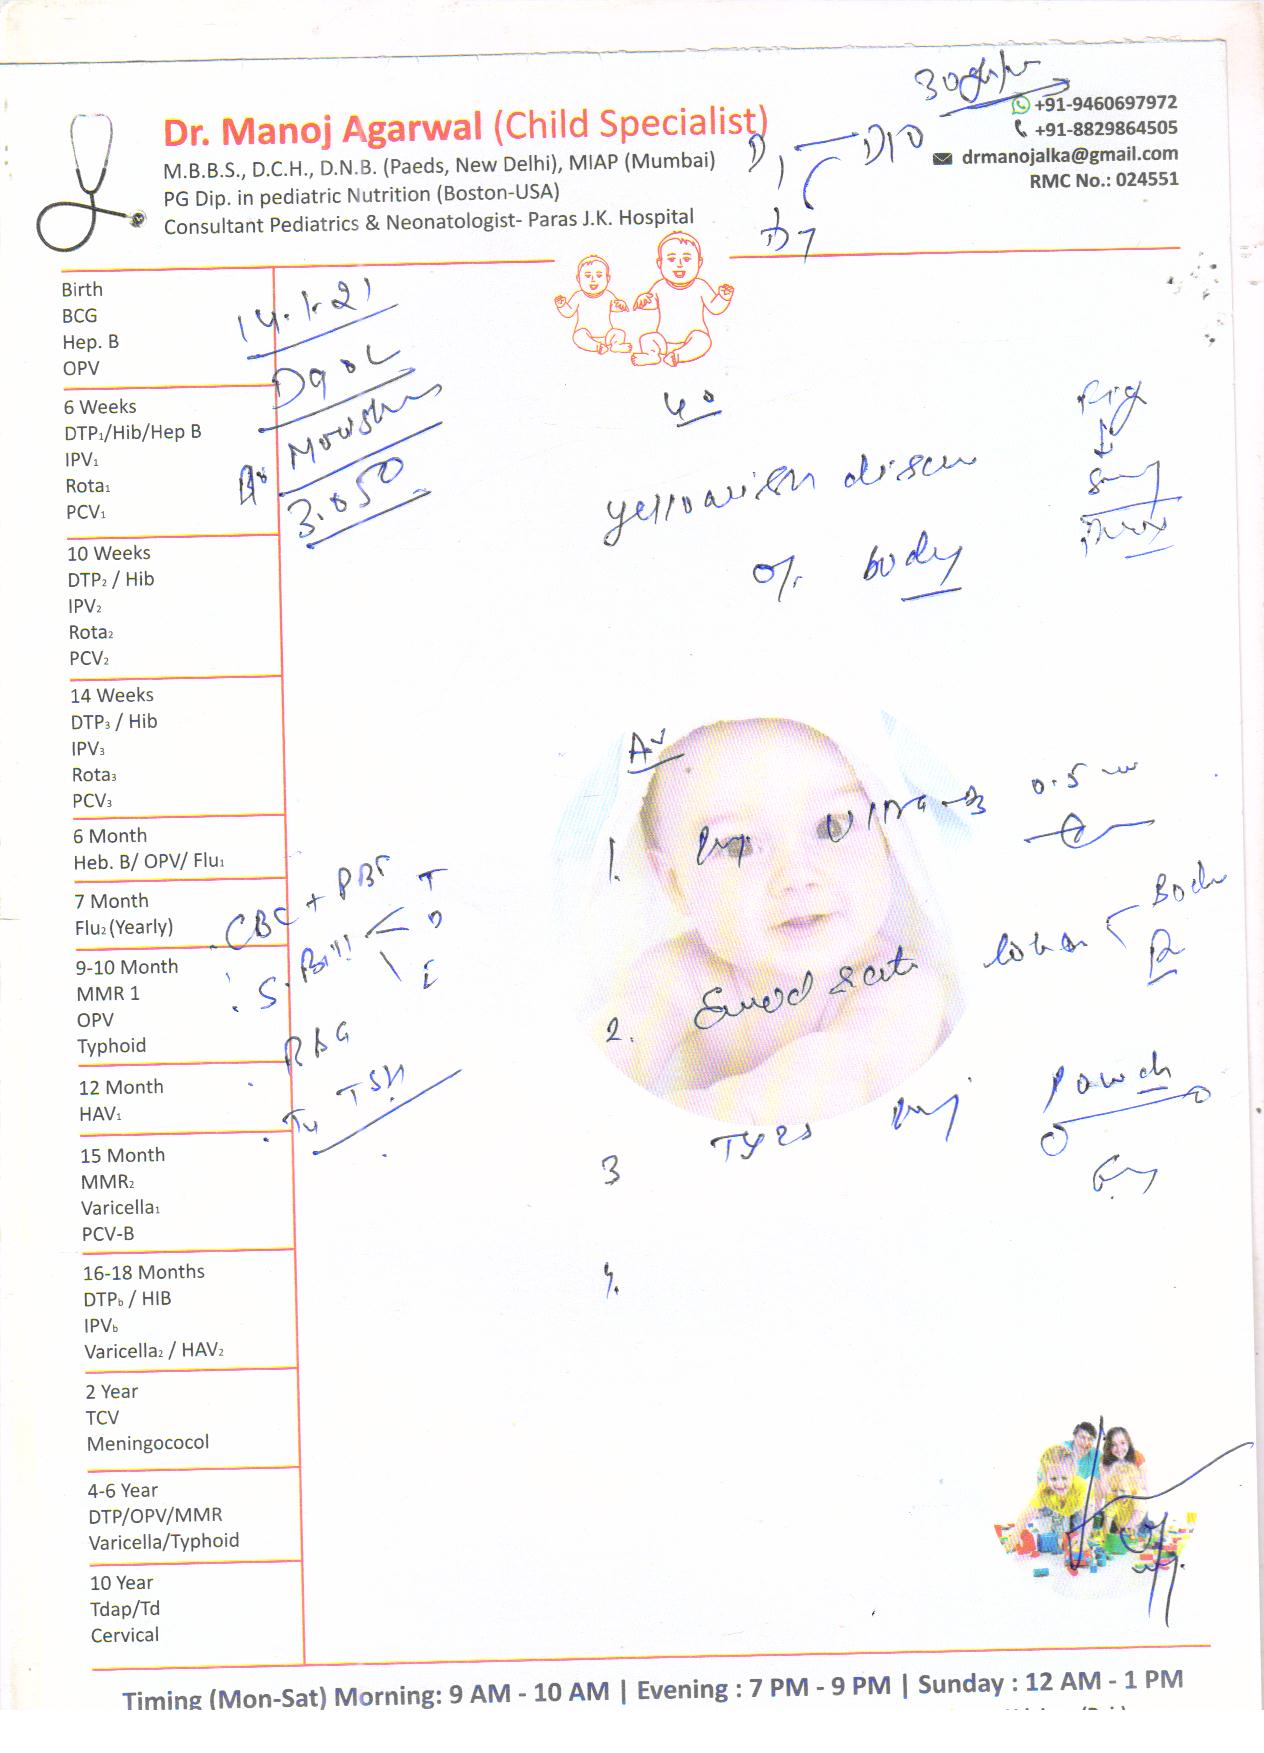 Dr. Manoj Agarwal (Child Specialist)
M.B.B.S., D.C.H., D.N.B. (Paeds, New Delhi), MIAP (Mumbai)
PG Dip. in pediatric Nutrition (Boston-USA)
Consultant Pediatrics & Neonatologist- Paras J.K. Hospital
+91-9460697972
+91-8829864505
drmanojalka@gmail.com
RMC No.: 024551
D1 D10
D7
Birth
BCG
Hep. B
OPV
14.1.21
6 Weeks
DTP1/Hib/Hep B
IPV1
Rota1
PCV1
3.050
yellowish
body
10 Weeks
DTP2 / Hib
IPV2
Rota2
PCV2
14 Weeks
DTP3 / Hib
IPV3
Rota3
PCV3
6 Month
Heb. B/ OPV/ Flu1
7 Month
Flu2 (Yearly)
9-10 Month
MMR 1
OPV
Typhoid
12 Month
HAV1
15 Month
MMR2
Varicella1
PCV-B
16-18 Months
DTPb / HIB
IPVb
Varicella2 / HAV2
2 Year
TCV
Meningococol
4-6 Year
DTP/OPV/MMR
Varicella/Typhoid
10 Year
Tdap/Td
Cervical
CBC + PBF
S. Bili T
D
I
RBG
T4 TSH
Av
1. 0.5
2. lotion
3
4.
Timing (Mon-Sat) Morning: 9 AM - 10 AM | Evening : 7 PM - 9 PM | Sunday : 12 AM - 1 PM